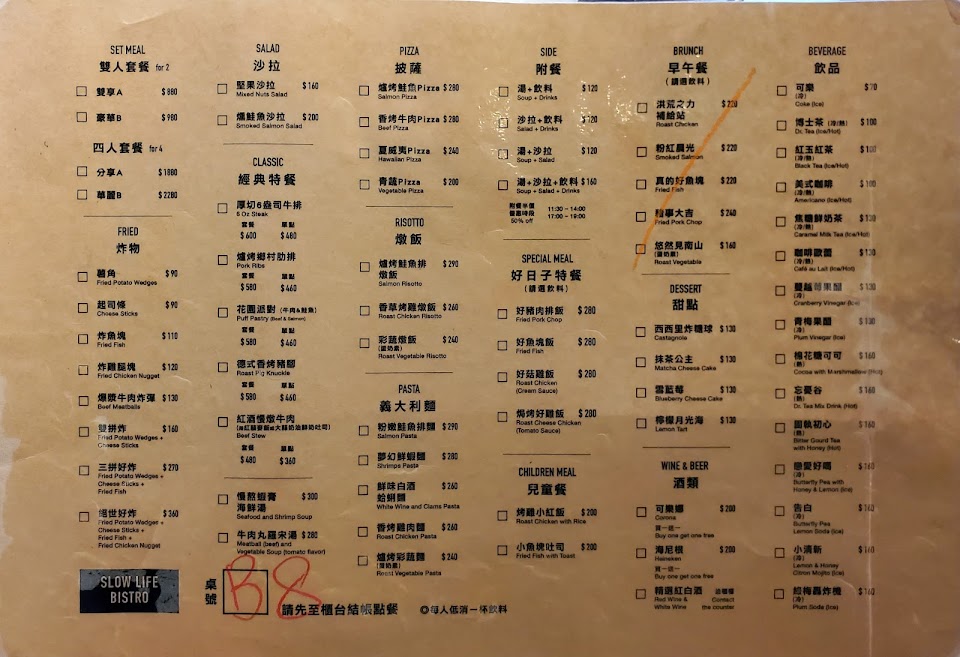 SET MEAL
雙人套餐 for 2
雙享A $880
豪華B $980
四人套餐 for 4
分享A $1880
華麗B $2280
FRIED
炸物
薯角 $90
Fried Potato Wedges
起司條 $90
Cheese Sticks
炸魚塊 $110
Fried Fish
炸雞腿塊 $120
Fried Chicken Nugget
爆漿牛肉炸彈 $130
Beef Meatballs
雙拼炸 $160
Fried Potato Wedges +
Cheese Sticks
三拼好炸 $270
Fried Potato Wedges +
Cheese Sticks +
Fried Fish
絕世好炸 $360
Fried Potato Wedges +
Cheese Sticks +
Fried Fish +
Fried Chicken Nugget
SLOW LIFE
BISTRO
SALAD
沙拉
堅果沙拉 $160
Mixed Nuts Salad
燻鮭魚沙拉 $200
Smoked Salmon Salad
CLASSIC
經典特餐
厚切6盎司牛排
6 Oz Steak
套餐 單點
$600 $480
爐烤鄉村肋排
Pork Ribs
套餐 單點
$580 $460
花園派對 (牛肉&鮭魚)
Puff Pastry (Beef & Salmon)
套餐 單點
$580 $460
德式香烤豬腳
Roast Pig Knuckle
套餐 單點
$580 $460
紅酒慢燉牛肉
Beef Stew
套餐 單點
$480 $360
慢熬蝦膏
海鮮湯 $300
Seafood and Shrimp Soup
牛肉丸羅宋湯 $280
Meatball (beef) and
Vegetable Soup (tomato flavor)
桌號 B8
請先至櫃台結帳點餐 ◎每人低消一杯飲料
PIZZA
披薩
爐烤鮭魚Pizza $280
Salmon Pizza
香烤牛肉Pizza $280
Beef Pizza
夏威夷Pizza $240
Hawaiian Pizza
青蔬Pizza $200
Vegetable Pizza
RISOTTO
燉飯
爐烤鮭魚排
燉飯 $290
Salmon Risotto
香草烤雞燉飯 $260
Roast Chicken Risotto
彩蔬燉飯 $240
(蛋奶素)
Roast Vegetable Risotto
PASTA
義大利麵
粉嫩鮭魚排麵 $290
Salmon Pasta
夢幻鮮蝦麵 $280
Shrimps Pasta
鮮味白酒
蛤蜊麵 $260
White Wine and Clams Pasta
香烤雞肉麵 $260
Roast Chicken Pasta
爐烤彩蔬麵 $240
(蛋奶素)
Roast Vegetable Pasta
SIDE
附餐
湯+飲料 $120
Soup + Drinks
沙拉+飲料 $120
Salad + Drinks
湯+沙拉 $120
Soup + Salad
湯+沙拉+飲料 $160
Soup + Salad + Drinks
附餐半價
優惠時段
50% off
11:30 - 14:00
17:00 - 19:00
SPECIAL MEAL
好日子特餐
(請選飲料)
好豬肉排飯 $280
Fried Pork Chop
好魚塊飯 $280
Fried Fish
好菇雞飯 $280
Roast Chicken
(Cream Sauce)
焗烤好雞飯 $280
Roast Cheese Chicken
(Tomato Sauce)
CHILDREN MEAL
兒童餐
烤雞小紅飯 $200
Roast Chicken with Rice
小魚塊吐司 $200
Fried Fish with Toast
BRUNCH
早午餐
(請選飲料)
洪荒之力
補給站 $220
Roast Chicken
粉紅晨光 $220
Smoked Salmon
真的好魚塊 $220
Fried Fish
豬事大吉 $240
Fried Pork Chop
悠然見南山 $160
(蛋奶素)
Roast Vegetable
DESSERT
甜點
西西里炸糖球 $130
Castagnole
抹茶公主 $130
Matcha Cheese Cake
雪藍莓 $130
Blueberry Cheese Cake
檸檬月光海 $130
Lemon Tart
WINE & BEER
酒類
可樂娜 $200
Corona
買一送一
Buy one get one free
海尼根 $200
Heineken
買一送一
Buy one get one free
精選紅白酒 洽櫃檯
Red Wine & Contact
White Wine the counter
BEVERAGE
飲品
可樂 $70
(冷)
Coke (Ice)
博士茶 (冷/熱) $100
Dr. Tea (Ice/Hot)
紅玉紅茶 $100
(冷/熱)
Black Tea (Ice/Hot)
美式咖啡 $100
(冷/熱)
Americano (Ice/Hot)
焦糖鮮奶茶 $130
(冷/熱)
Caramel Milk Tea (Ice/Hot)
咖啡歐蕾 $130
(冷/熱)
Café au Lait (Ice/Hot)
蔓越莓果醋 $130
(冷)
Cranberry Vinegar (Ice)
青梅果醋 $130
(冷)
Plum Vinegar (Ice)
棉花糖可可 $160
(熱)
Cocoa with Marshmallow (Hot)
忘憂谷 $160
(熱)
Dr. Tea Mix Drink (Hot)
初心 $160
(熱)
Bitter Gourd Tea
with Honey (Hot)
戀愛好喝 $160
(冷)
Butterfly Pea with
Honey & Lemon (Ice)
告白 $160
(冷)
Butterfly Pea
Lemon Soda (Ice)
小清新 $160
(冷)
Lemon & Honey
Citron Mojito (Ice)
轟炸機 $160
(冷)
Plum Soda (Ice)